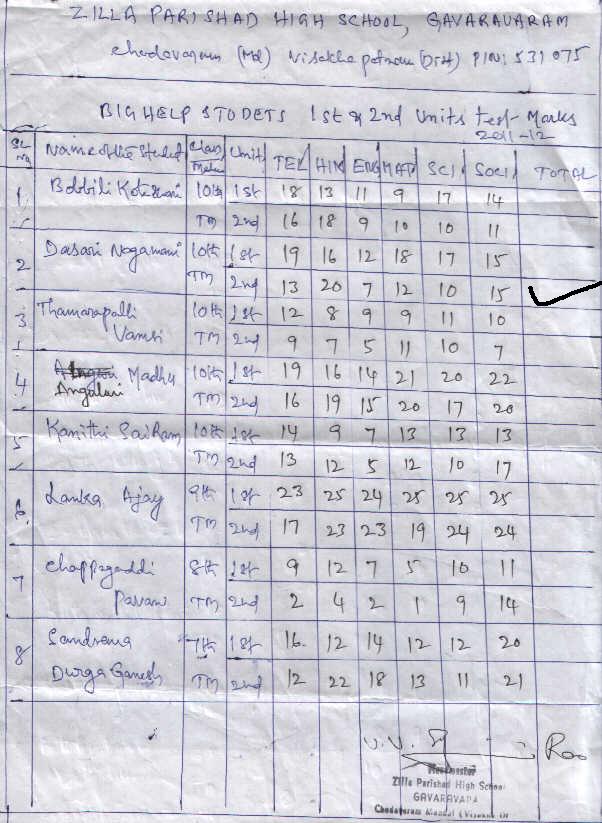 ZILLA PARISHAD HIGH SCHOOL, GAVARAVARAM
Chodavaram (Md) Visakhapatnam (Dist) PIN: 531075
BIGHELP STODETS 1st & 2nd Units test Marks
2011-12
SL No Name of the Student Class Medium Unit TEL HIN ENG MAT SCI SOCI TOTAL
1 Bobbili 10th 1st 18 13 11 9 17 14
TM 2nd 16 18 9 10 10 11
2 Dasari Nagamani 10th 1st 19 16 12 18 17 15
TM 2nd 13 20 7 12 10 15
3 Thamarapalli 10th 1st 12 8 9 9 11 10
Vamsi TM 2nd 9 7 5 11 10 7
4 Madhu 10th 1st 19 16 14 21 20 22
Angalari TM 2nd 16 19 15 20 17 20
5 Kamithi SaiRam 10th 1st 14 9 7 13 13 13
TM 2nd 13 12 5 12 10 17
6. Lanka Ajay 9th 1st 23 25 24 25 25 25
TM 2nd 17 23 23 19 24 24
7 Chappagaddi 8th 1st 9 12 7 5 10 11
Pavani TM 2nd 2 4 2 1 9 14
8 7th 1st 16. 12 14 12 12 20
Durga Ganesh TM 2nd 12 22 18 13 11 21
V.V. Rao
Headmaster
Zilla Parishad High School
GAVARAVARA
Chodavaram Mandal